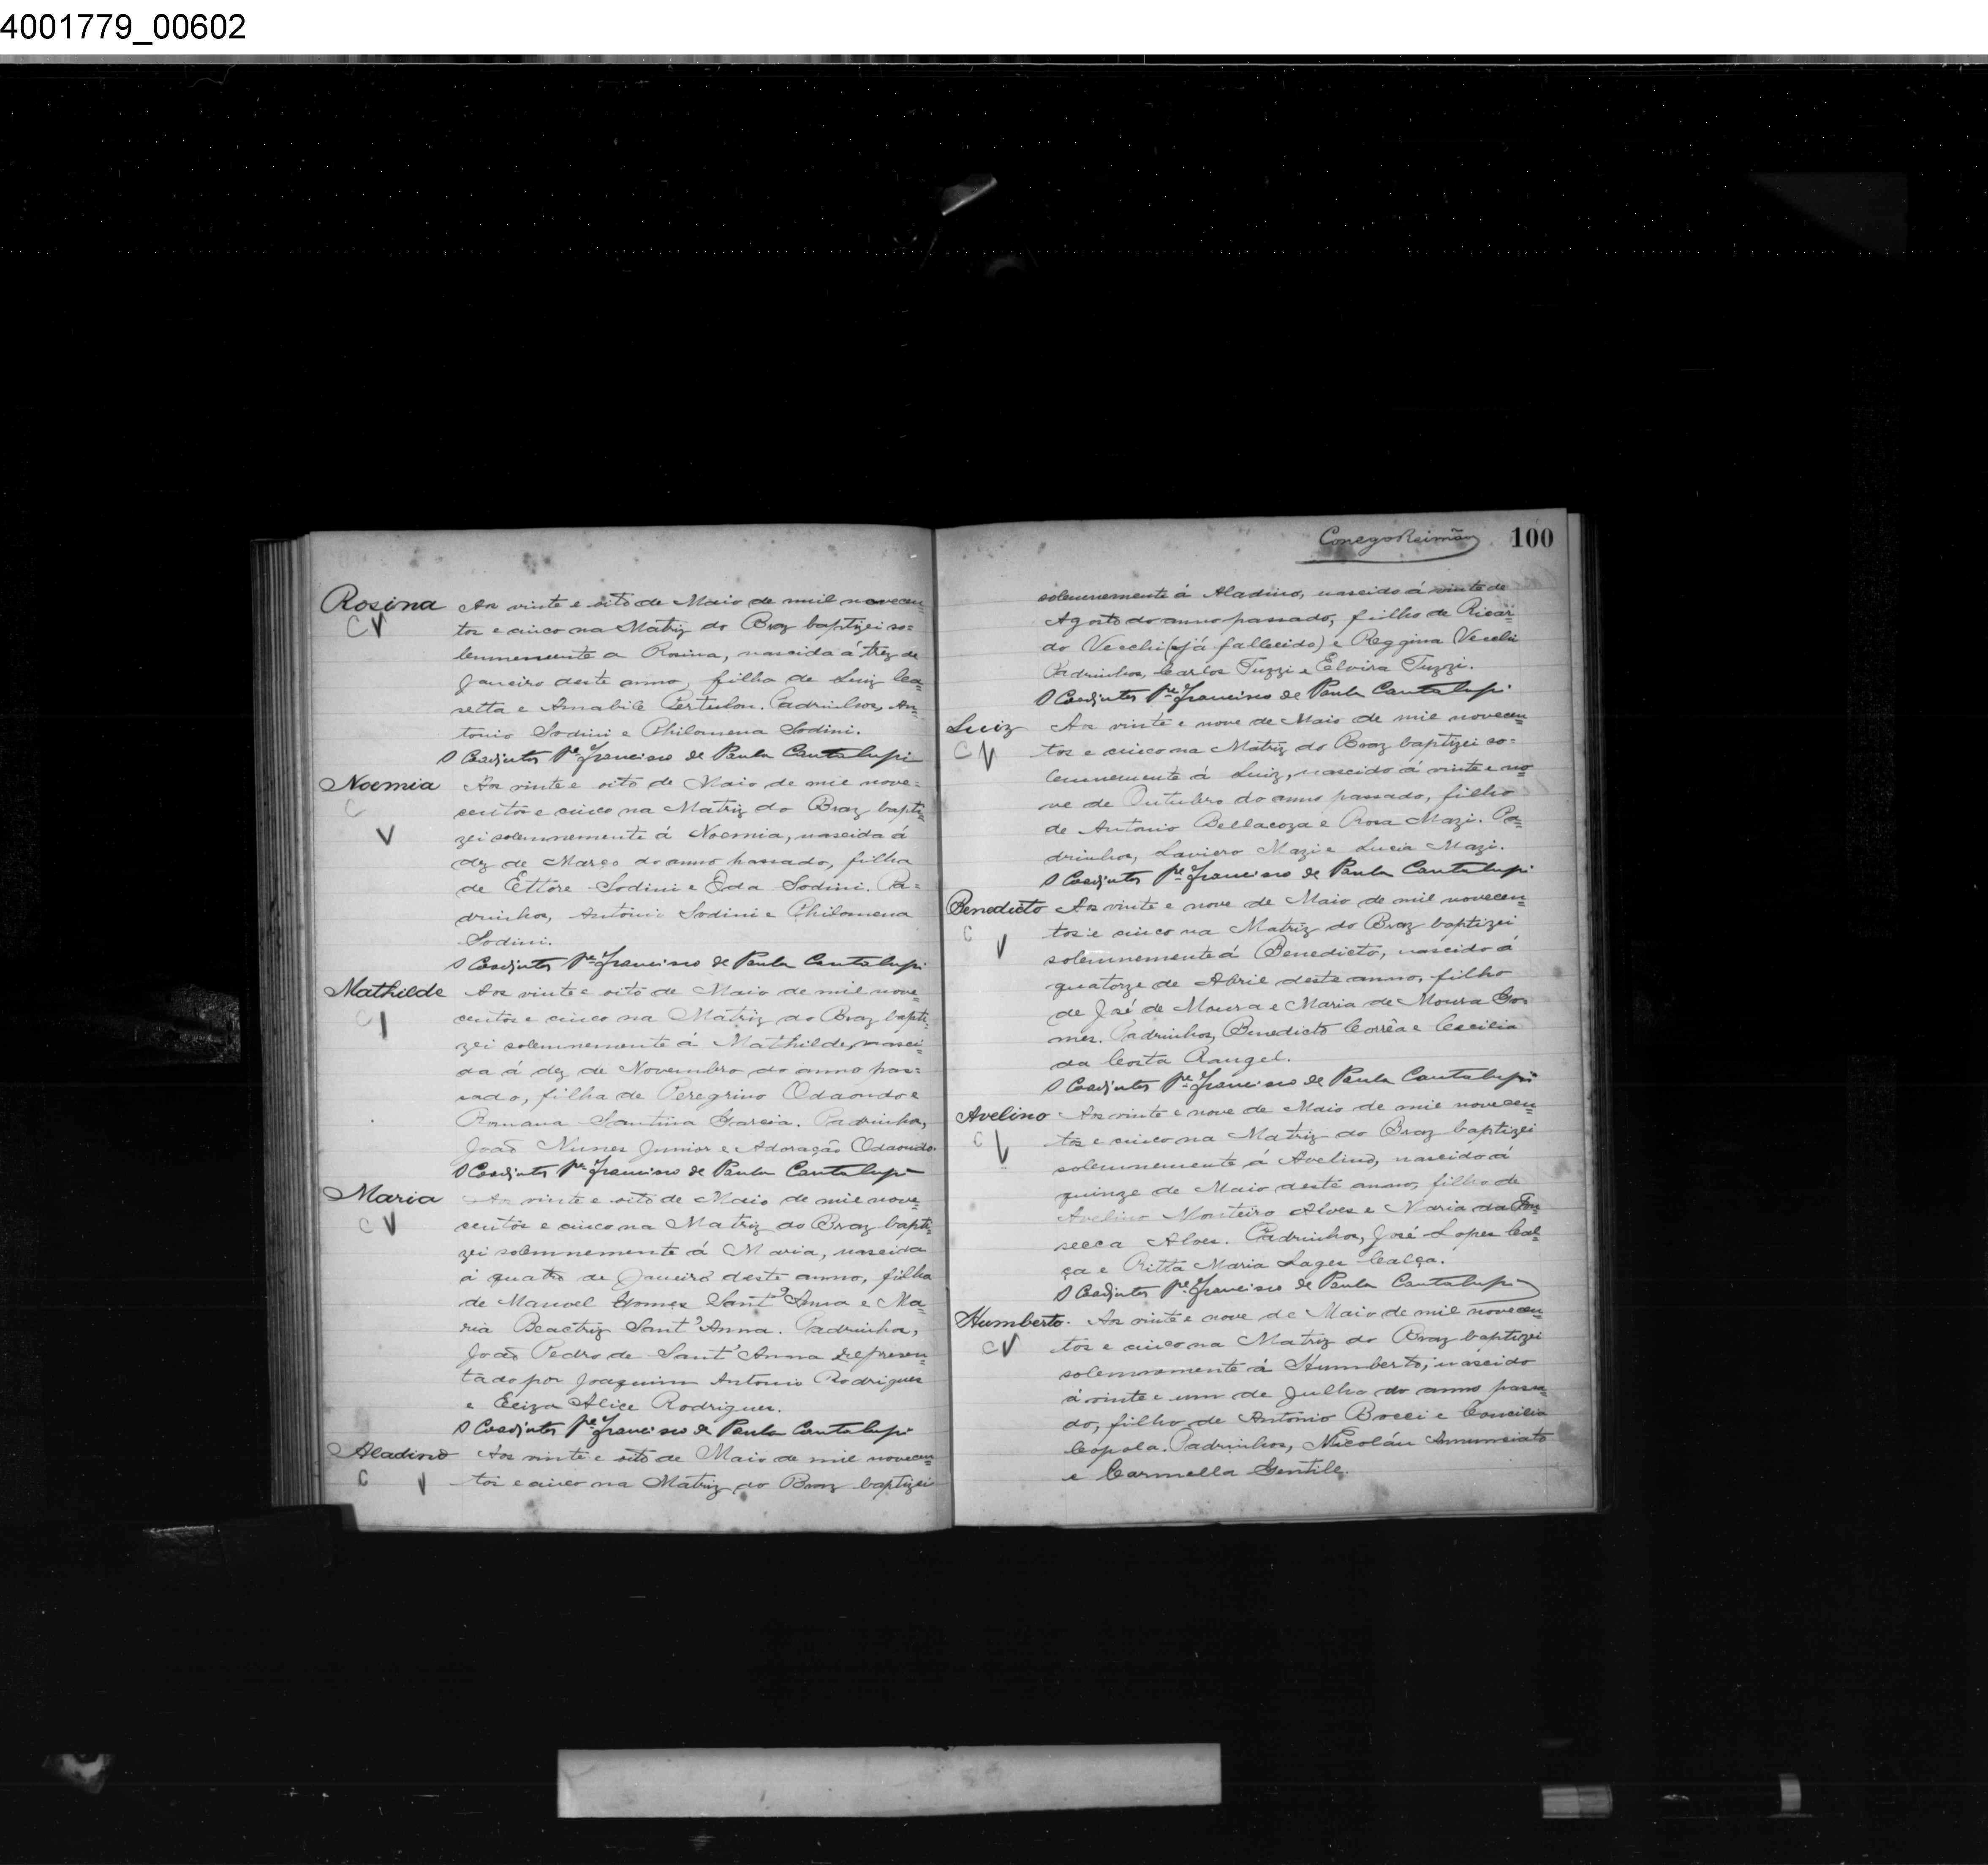 4001779_00602
Rosina Aos vinte e oito de Maio de mil novecen=
tos e cinco na Matriz do Braz baptizei so=
lemnemente a Rosina, nascida á trez de
Janeiro deste anno, filha de Luiz Ca=
setta e Amabile Pertulon. Padrinhos, An=
tonio Sodini e Philomena Sodini.
O Coadjutor Pe Francisco de Paula Cantalupi
Noemia Aos vinte e oito de Maio de mil nove=
centos e cinco na Matriz do Braz bapti=
zei solemnemente á Noemia, nascida á
dez de Março do anno passado, filha
de Ettore Sodini e Eda Sodini. Pa=
drinhos, Antonio Sodini e Philomena
Sodini.
O Coadjutor Pe Francisco de Paula Cantalupi
Mathilde Aos vinte e oito de Maio de mil nove=
centos e cinco na Matriz do Braz bapti=
zei solemnemente á Mathilde, nasci=
da á dez de Novembro do anno pas=
sado, filha de Peregrino Odaondo e
Romana Santina Garcia. Padrinhos,
João Nunes Junior e Adoração Odaondo.
O Coadjutor Pe Francisco de Paula Cantalupi
Maria Aos vinte e oito de Maio de mil nove=
centos e cinco na Matriz do Braz bapti=
zei solemnemente á Maria, nascida
á quatro de Janeiro deste anno, filha
de Manoel Gomes Sant'Anna e Ma=
ria Beactriz Sant'Anna. Padrinhos,
João Pedro de Sant'Anna represen=
tado por Joaquim Antonio Rodrigues
e Eliza Alice Rodrigues.
O Coadjutor Pe Francisco de Paula Cantalupi
Aladino Aos vinte e oito de Maio de mil novecen=
tos e cinco na Matriz do Braz baptizei
Conego Reimão 100
solemnemente á Aladino, nascido á vinte de
Agosto do anno passado, filho de Ricar=
do Vecchi (já fallecido) e Reggina Vecchi
Padrinhos, Carlos Tuzzi e Elvira Tuzzi.
O Coadjutor Pe Francisco de Paula Cantalupi
Luiz Aos vinte e nove de Maio de mil novecen=
tos e cinco na Matriz do Braz baptizei so=
lemnemente á Luiz, nascido á vinte e no=
ve de Outubro do anno passado, filho
de Antonio Bellacoza e Rosa Mazi. Pa=
drinhos, Saviero Mazi e Lucia Mazi.
O Coadjutor Pe Francisco de Paula Cantalupi
Benedicto Aos vinte e nove de Maio de mil novecen=
tos e cinco na Matriz do Braz baptizei
solemnemente á Benedicto, nascido á
quatorze de Abril deste anno, filho
de José de Moura e Maria de Moura Go=
mes. Padrinhos, Benedicto Corrêa e Cecilia
da Costa Rangel.
O Coadjutor Pe Francisco de Paula Cantalupi
Avelino Aos vinte e nove de Maio de mil novecen=
tos e cinco na Matriz do Braz baptizei
solemnemente á Avelino, nascido á
quinze de Maio deste anno, filho de
Avelino Monteiro Alves e Maria da Fon=
seca Alves. Padrinhos, José Lopes Cal=
ça e Ritta Maria Lages Calça.
O Coadjutor Pe Francisco de Paula Cantalupi
Humberto. Aos vinte e nove de Maio de mil novecen=
tos e cinco na Matriz do Braz baptizei
solemnemente á Humberto, nascido
á vinte e um de Julho do anno passa=
do, filho de Antonio Bocci e Concilia
Copola. Padrinhos, Nicoláu Annunciato
e Carmella Gentile.